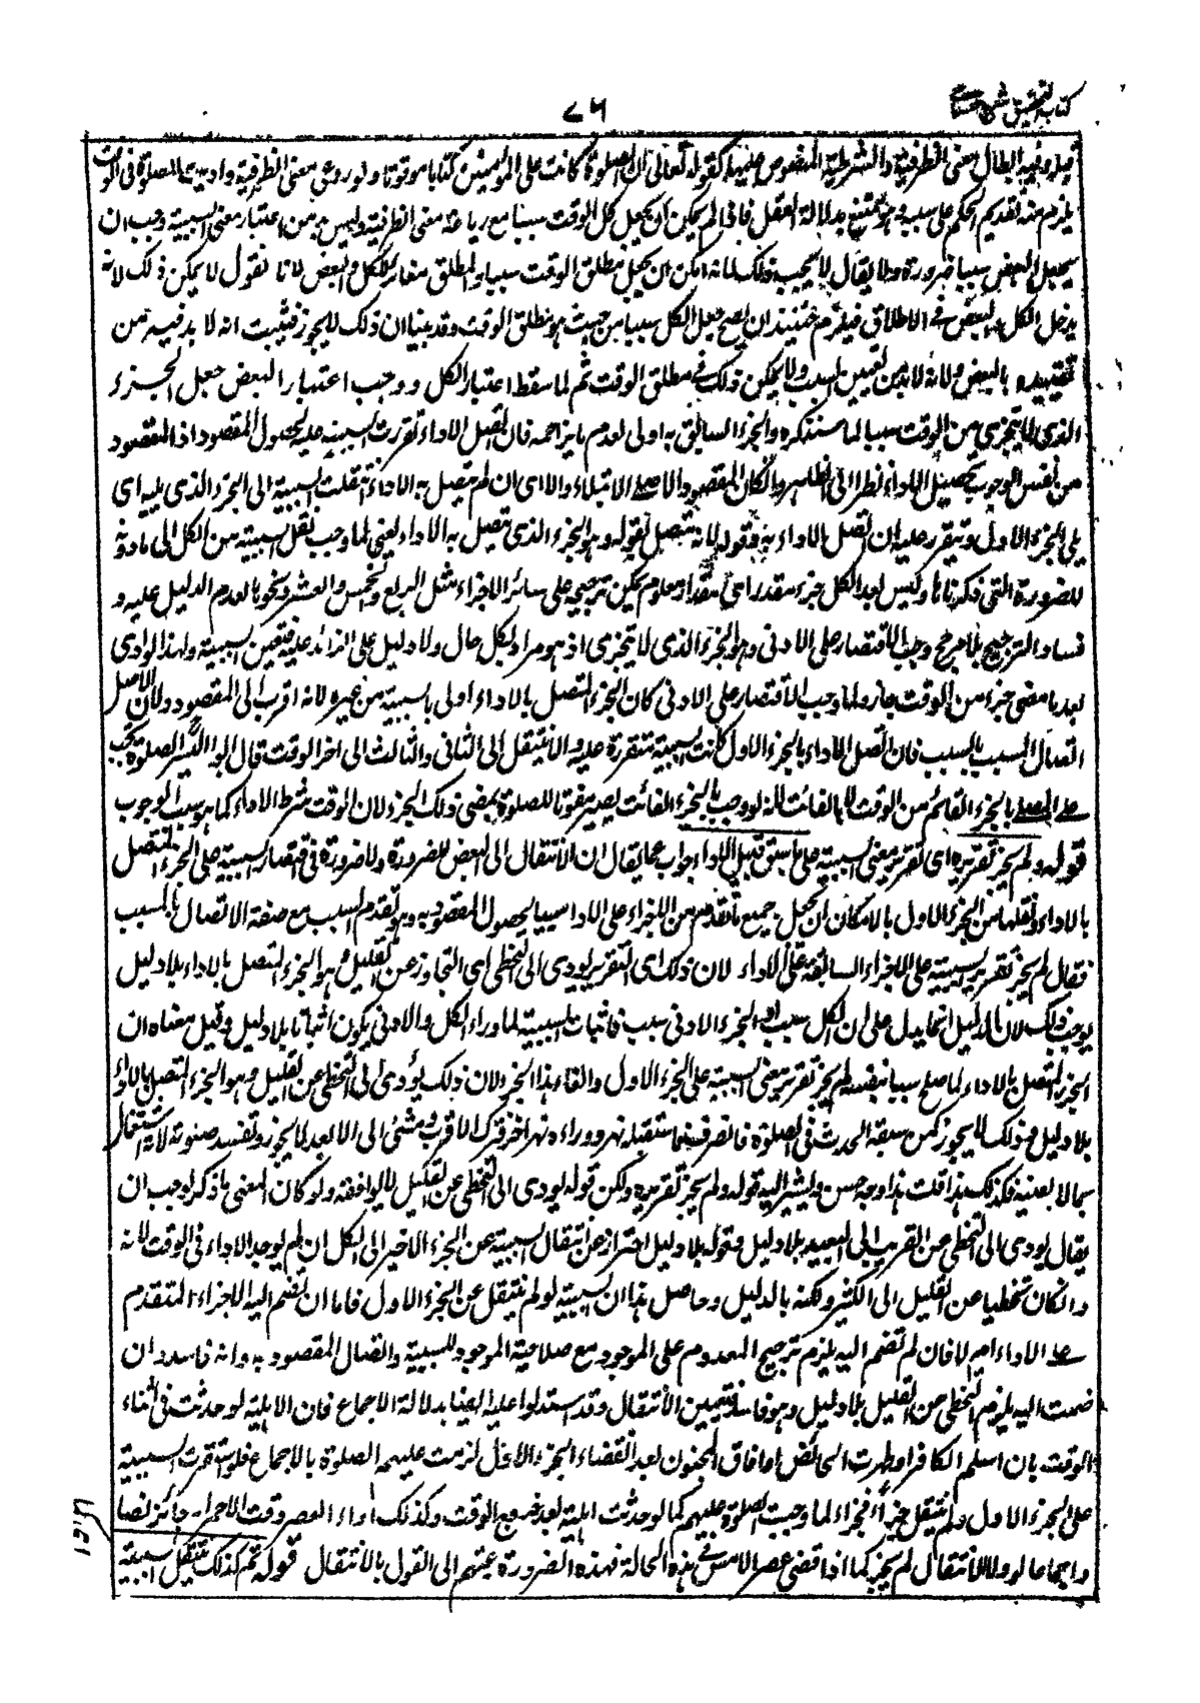 كتاب التحقيق شرح حسامى
٧٦
قبله وفيه ابطال معنى الظرفية والشرطية المنصوص عليها كقوله تعالى ان الصلوة كانت على المؤمنين كتابا موقوتا ولو روعى معنى الظرفية واديت الصلوة فى الوقت
يلزم منه تقديم الحكم على سببه وهو ممتنع بدلالة العقل فاذا لم يمكن ان يجعل كل الوقت سببا مع رعاية معنى الظرفية وليس بد من اعتبار معنى السببية وجب ان
يجعل البعض سببا ضرورة ولا يقال لا يجب ذلك لما انه امكن ان يجعل مطلق الوقت سببا والمطلق مغائر للكل والبعض لانا نقول لا يمكن ذلك لانه
يدخل الكل والبعض فى الاطلاق فيلزم حينئذ ان يصح جعل الكل سببا من حيث هو مطلق الوقت وقد بينا ان ذلك لا يجوز فثبت انه لا بد فيه من
تقييده بالبعض ولانه لا بد من تعيين السبب ولا يمكن ذلك فى مطلق الوقت ثم لما سقط اعتبار الكل ووجب اعتبار البعض جعل الجزء
الذى لا يتجزى من الوقت سببا لما سنذكره والجزء السابق به اولى لعدم ما يزاحمه فان اتصل الاداء تقررت السببية عليه لحصول المقصود اذ المقصود
من نفس الوجوب تحصيل الاداء نظرا الى الظاهر وان كان المقصود الاصلى الابتلاء والا اى ان لم يتصل به الاداء انتقلت السببية الى الجزء الذى يليه اى
يلى الجزء الاول ويتقرر عليه ان اتصل الاداء به فقوله لانه يتصل بقوله وهو الجزء الذى يتصل به الاداء يعنى لما وجب نقل السببية من الكل الى ما دونه
للضرورة التى ذكرنا وليس بعد الكل جزء مقدر اى مقدار معلوم يمكن ترجيحه على سائر الاجزاء مثل الربع والخمس والعشر ونحوها لعدم الدليل عليه و
فساد الترجيح بلا مرجح وجب الاقتصار على الادنى وهو الجزء الذى لا يتجزى اذ هو مراد بكل حال ولا دليل على الزائد عليه فتعين للسببية ولهذا لو ادى
بعد ما مضى جزء من الوقت جاز ولما وجب الاقتصار على الادنى كان الجزء المتصل بالاداء اولى بالسببية من غيره لانه اقرب الى المقصود ولان الاصل
اتصال المسبب بالسبب فان اتصل الاداء بالجزء الاول كانت السببية متقررة عليه والا تنتقل الى الثانى والثالث الى اخر الوقت قال ابو اليسر الصلوة تجب
على المصلى بالجزء القائم من الوقت لا بالفائت لانه لو وجب بالجزء الفائت يصير مفوتا للصلوة بمضى ذلك الجزء لان الوقت شرط الاداء كما هو سبب الوجوب
قوله ولم يجز تقريره اى تقرير معنى السببية على ما سبق قبيل الاداء جواب عما يقال ان الانتقال الى البعض للضرورة ولا ضرورة فى اقتصار السببية على الجزء المتصل
بالاداء ونقلها من الجزء الاول بالامكان ان يجعل جميع ما تقدم من الاجزاء على الاداء سببا لحصول المقصود به وهو تقدم السبب مع صفة الاتصال بالمسبب
فقال لم يجز تقرير السببية على الاجزاء السابقة على الاداء لان ذلك اى التقرير يؤدى الى التخطى اى التجاوز عن القليل وهو الجزء المتصل بالاداء بلا دليل
يوجب ذلك لان الدليل انما يدل على ان الكل سبب او الجزء الادنى سبب فاثبات السببية لما وراء الكل والادنى يكون اثباتا بلا دليل وقيل معناه ان
الجزء المتصل بالاداء لما صلح سببا بنفسه لم يجز تقرير معنى السببية على الجزء الاول والغاء هذا الجزء لان ذلك يؤدى الى التخطى عن القليل وهو الجزء المتصل بالاداء
بلا دليل وذلك لا يجوز كمن سبقه الحدث فى الصلوة فانصرف فاستقبله نهر ووراءه نهر اخر فترك الاقرب ومشى الى الابعد لا يجوز وتفسد صلوته لانه اشتغال
بما لا يعنيه فكذلك هذا قلت هذا وجه حسن ويشير اليه قوله ولم يجز تقريره ولكن قوله يؤدى الى التخطى عن القليل لا يوافقه ولو كان المعنى ما ذكر لوجب ان
يقال يؤدى الى التخطى عن القريب الى البعيد بلا دليل وقوله بلا دليل احتراز عن انتقال السببية عن الجزء الاخير الى الكل ان لم يوجد الاداء فى الوقت لانه
وان كان تخطيا عن القليل الى الكثير ولكنه بالدليل وحاصل هذا ان السببية لو لم تنتقل عن الجزء الاول فاما ان تضم اليه الاجزاء المتقدم
على الاداء ام لا فان لم تضم اليه يلزم ترجيح المعدوم على الموجود مع صلاحية الموجود للسببية واتصال المقصود به وانه فاسد وان
ضمت اليه يلزم التخطى عن القليل بلا دليل وهو فاسد فتعين الانتقال وقد استدلوا عليه ايضا بدلالة الاجماع فان الاهلية لو حدثت فى اثناء
الوقت بان اسلم الكافر او طهرت الحائض او افاق المجنون بعد انقضاء الجزء الاول لزمت عليهم الصلوة بالاجماع فلو استقرت السببية
على الجزء الاول ولم تنتقل جزءا فجزءا لما وجبت الصلوة عليهم كما لو حدثت اهلية بعد خروج الوقت وكذلك اداء العصر وقت الاحمرار جائز نصا
واجماعا ولولا الانتقال لم يجز كما اذا قضى عصر الامس فى هذه الحالة فهذه الضرورة دعتهم الى القول بالانتقال قوله ثم كذلك تنتقل السببية